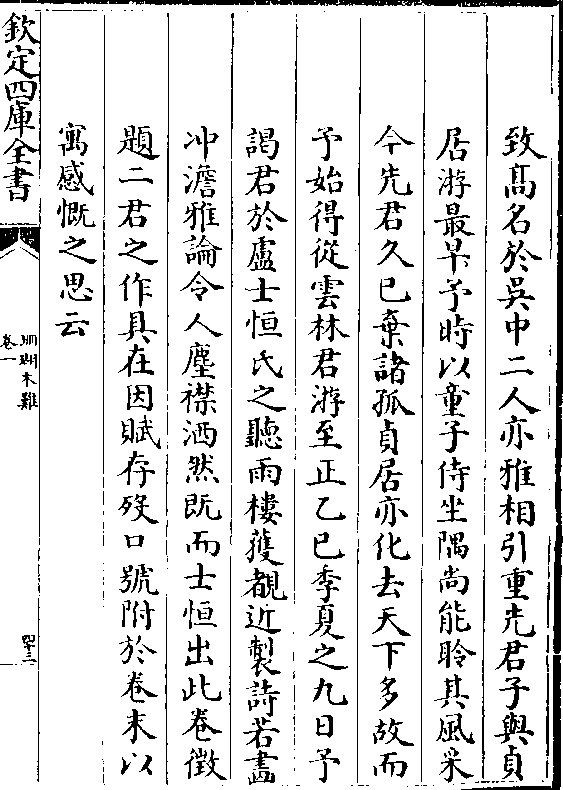 致髙名於吳中二人亦雅相引重先君子與貞
居游最早予時以童子侍坐隅尚能聆其風采
今先君久已棄諸孤貞居亦化去天下多故而
予始得從雲林君游至正乙巳季夏之九日予
謁君於盧士恒氏之聽雨樓獲覩近製詩若畵
冲澹雅論令人塵襟洒然既而士恒出此卷徵
題二君之作具在因賦存殁口號附於卷末以
寓感慨之思云
欽定四庫全書
珊瑚木難
卷一
四十三